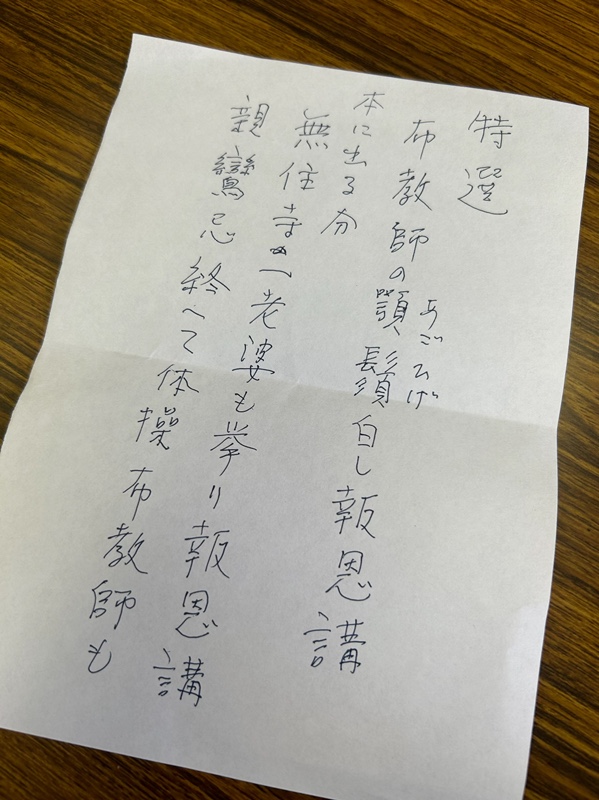 特選
布教師の顎鬚白し報恩講
あごひげ
本に出る分
無住寺へ老婆も挙り報恩講
親鸞忌終へて体操布教師も